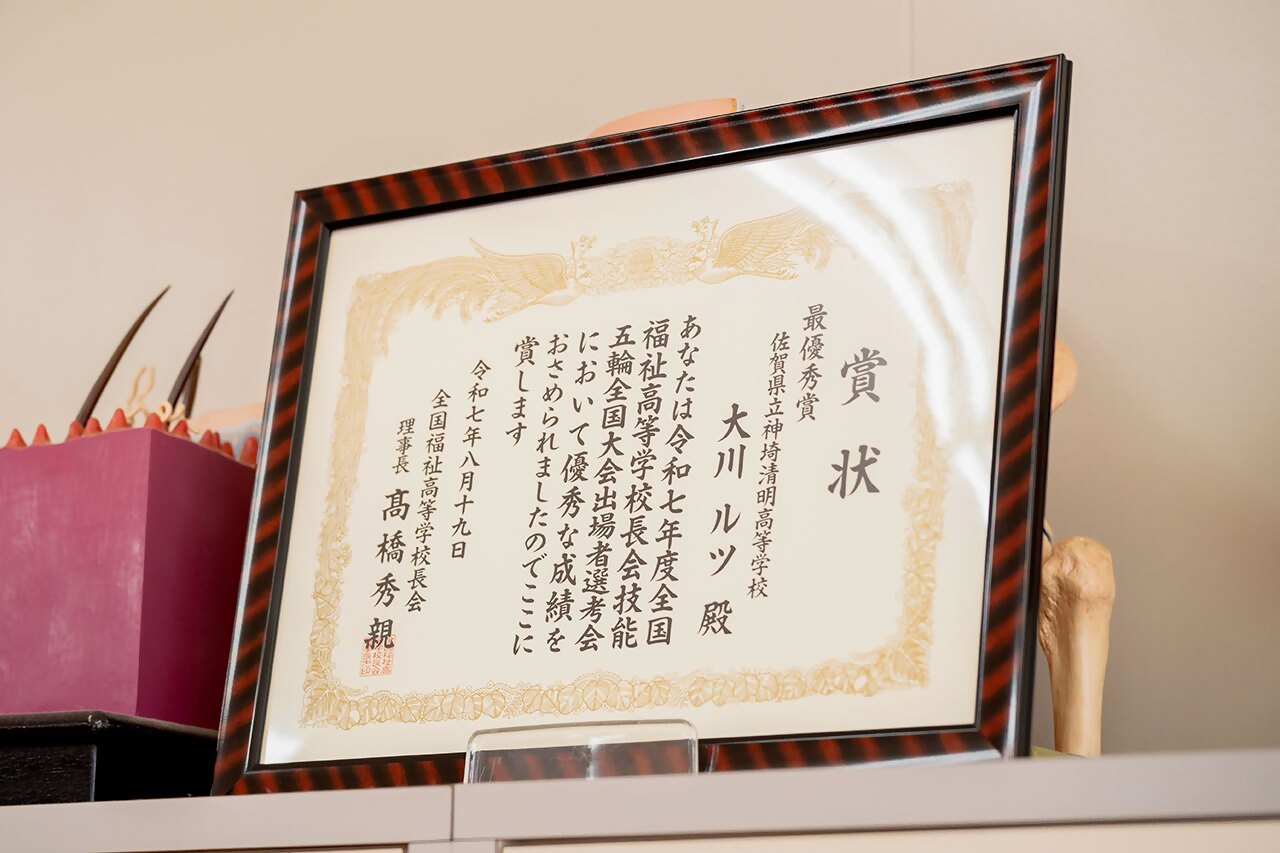 賞状
最優秀賞
佐賀県立神埼清明高等学校
大川 ルツ 殿
あなたは令和七年度全国
福祉高等学校長会技能
五輪全国大会出場者選考会
において優秀な成績を
おさめられましたのでここに
賞します
令和七年八月十九日
全国福祉高等学校長会
理事長 髙橋秀親